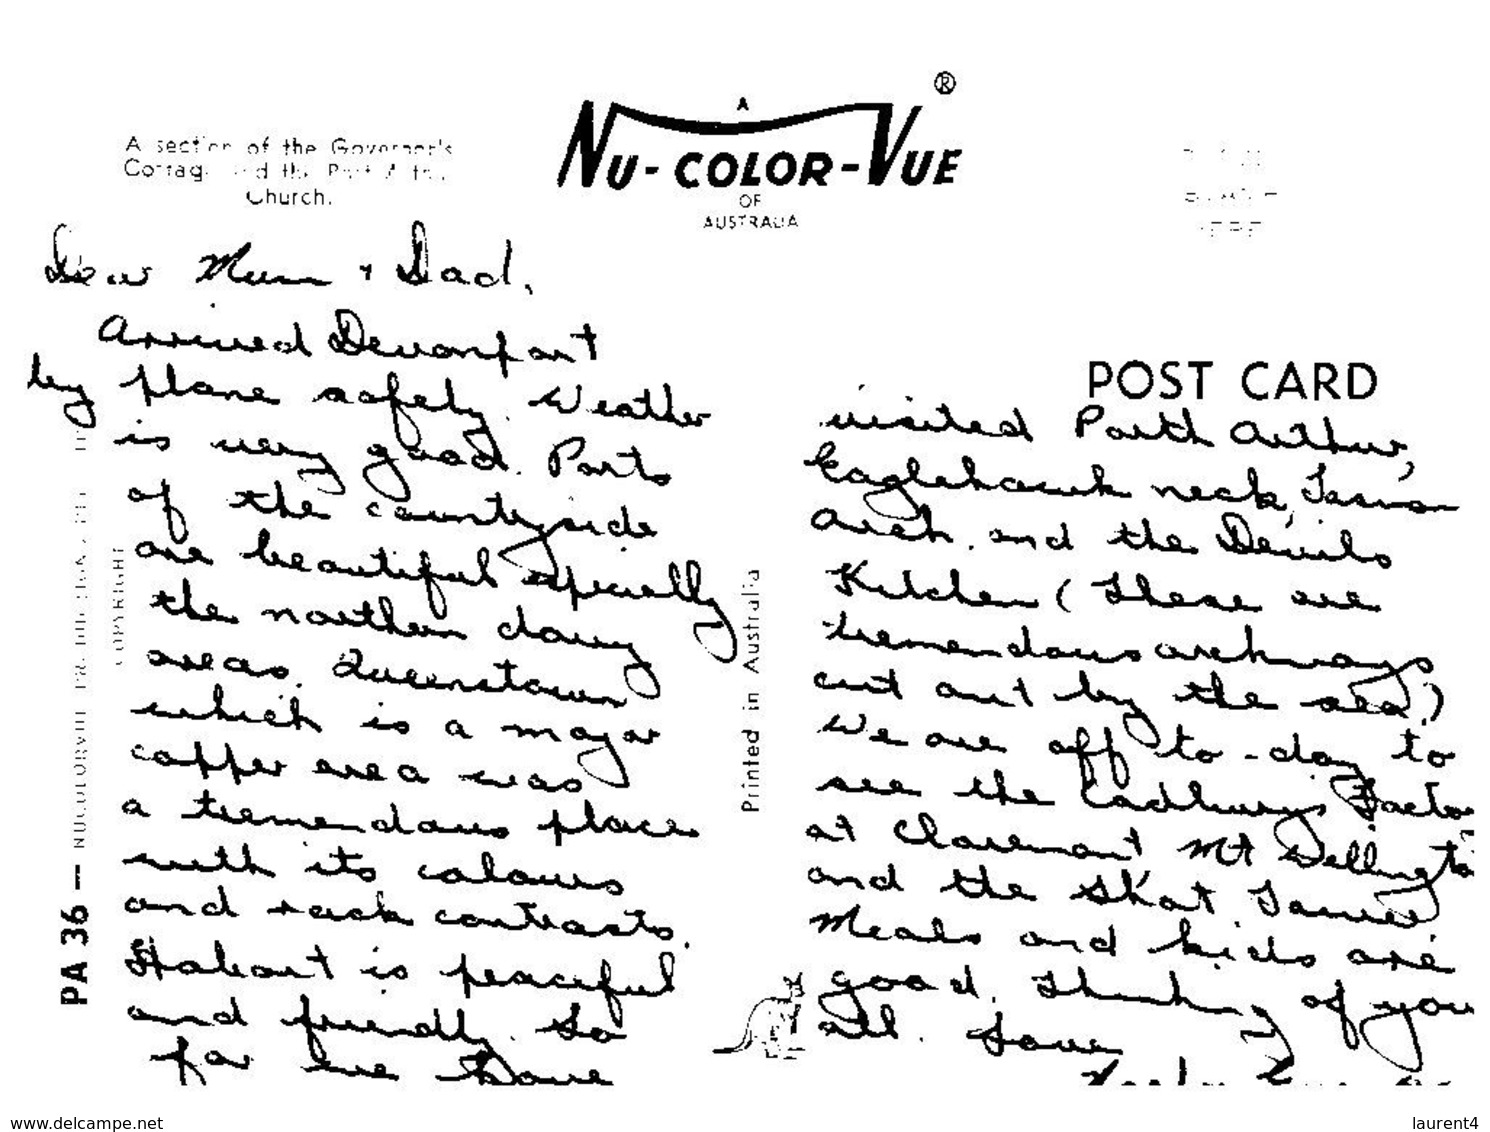 A section of the Governor's
Cottage and the Port Arthur
Church.
A
®
NU-COLOR-VUE
OF
AUSTRALIA
Dear Mum + Dad,
Arrived Devonport
by plane safely. Weather
is very good. Parts
of the countryside
are beautiful especially
the northern dairy
areas. Queenstown
which is a major
copper area was
a tremendous place
with its colours
and rock contrasts.
Hobart is peaceful
and friendly. So
far we have
POST CARD
visited Port Arthur,
Eaglehawk neck, Tasman
Arch, and the Devils
Kitchen (These are
tremendous archways
cut out by the sea.)
We are off to-day to
see the Cadburys Facto
at Claremont Mt Wellingto
and the Shot Tower
Meals and kids are
good. Thinking of you
all. Love
PA 36 —
COPYRIGHT
Printed in Australia
www.delcampe.net
laurent4